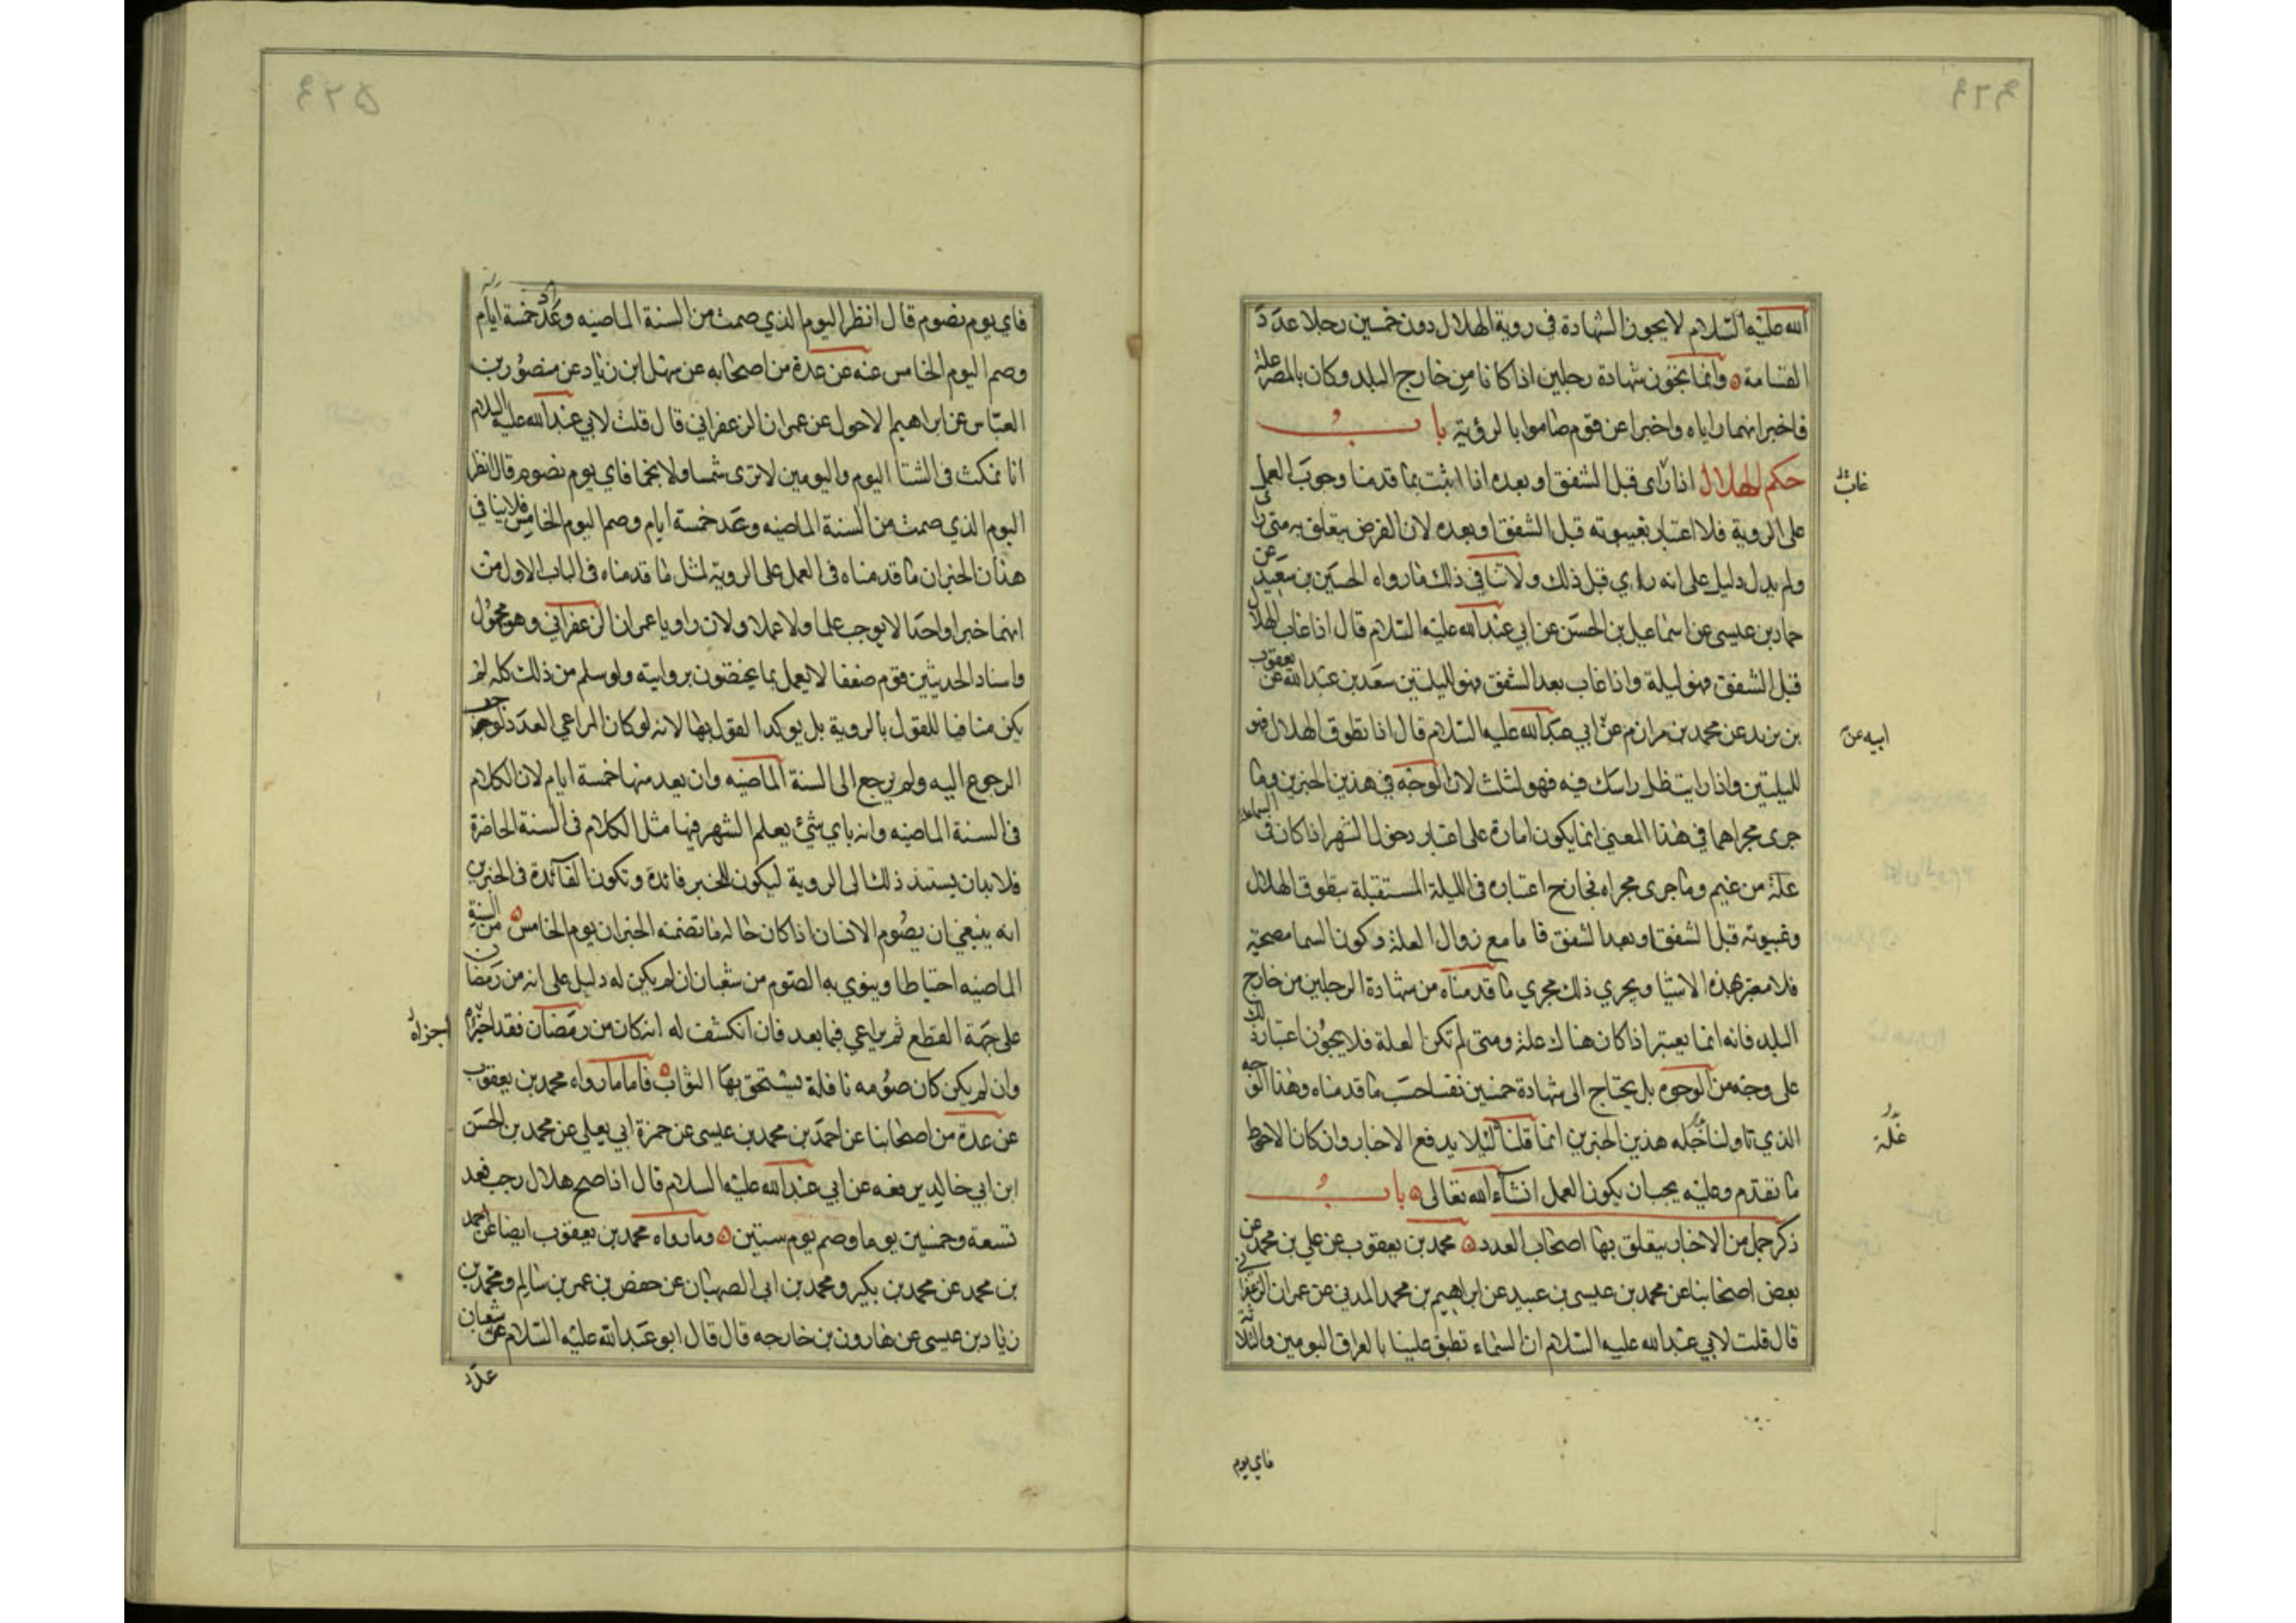 الله عليه السلام لا يجوز الشهادة في روية الهلال دون خمسين رجلا عدد
القسامة وانما يجوز شهادة رجلين اذا كانا من خارج البلد وكان بالمصر علة
فاخبرا انهما راياه واخبرا عن قوم صاموا بالرؤية باب
حكم الهلال اذا رأى قبل الشفق او بعده اذا اثبت بما قدمنا وجوب العمل
غاب
على الروية فلا اعتبار بغيبوته قبل الشفق او بعده لان الفرض يتعلق به متى رأى
ولم يدل دليل على انه رأي قبل ذلك ولا ينافي ذلك ما رواه الحسين بن سعيد عن
حماد بن عيسى عن اسماعيل بن الحسن عن ابي عبد الله عليه السلام قال اذا غاب الهلال
قبل الشفق فهو ليلة واذا غاب بعد الشفق فهو لليلتين سعد بن عبد الله عن يعقوب
بن يزيد عن محمد بن مرازم عن ابي عبد الله عليه السلام قال اذا تطوق الهلال فهو
ابيه عن
لليلتين واذا رايت ظل راسك فيه فهو لثلث لان الوجه في هذين الخبرين وما
جرى مجراهما في هذا المعنى انما يكون امارة على اعتبار دخول الشهر اذا كان في السماء
علة من غيم وما جرى مجراه فجاز ح اعتباره في الليلة المستقبلة بتطوق الهلال
وغيبوته قبل الشفق او بعد الشفق فاما مع زوال العلة وكون السما مصحية
فلا معتبر هذه الاشيا ويجري ذلك مجري ما قدمناه من شهادة الرجلين من خارج
البلد فانه انما يعتبر اذا كان هناك علة ومتى لم تكن العلة فلا يجوز اعتبار ذلك
على وجه من الوجوه بل يحتاج الى شهادة خمسين نفسا حسب ما قدمناه وهذا الوجه
الذي تاولنا عليه هذين الخبرين انما قلناه لئلا يدفع الاخبار وان كان الاحوط
علة
ما تقدم وعليه يجب ان يكون العمل انشاء الله تعالى باب
ذكر جمل من الاخبار يتعلق بها اصحاب العدد محمد بن يعقوب عن علي بن محمد عن
بعض اصحابنا عن محمد بن عيسى بن عبيد عن ابراهيم بن محمد المدني عن عمران الزعفراني
قال قلت لابي عبد الله عليه السلام ان السماء تطبق علينا بالعراق اليومين والثلاثة
فاي يوم
فاي يوم نصوم قال انظر اليوم الذي صمت من السنة الماضيه وعد خمسة ايام
وصم اليوم الخامس عنه عن عدة من اصحابه عن سهل ابن زياد عن منصور بن
العباس عن ابراهيم الاحول عن عمران الزعفراني قال قلت لابي عبد الله عليه السلام
انا نمكث في الشتا اليوم واليومين لا نرى شمسا ولا نجما فاي يوم نصوم قال انظر
اليوم الذي صمت من السنة الماضيه وعد خمسة ايام وصم اليوم الخامس فلا ينافي
هذان الخبران ما قدمناه في العمل على الروية لمثل ما قدمناه في الباب الاول من
انهما خبرا واحد لا يوجب علما ولا عملا ولان راويا عمران الزعفراني وهو مجهول
واسناد الحديثين قوم ضعفا لا يعمل بما يختصون بروايته ولو سلم من ذلك كله لم
يكن منافيا للقول بالروية بل يوكد القول بها لانه لو كان المراعي العدد لوجب
الرجوع اليه ولم يرجع الى السنة الماضيه وان يعد منها خمسة ايام لان الكلام
في السنة الماضيه وانه باي شئ يعلم الشهر فيها مثل الكلام في السنة الحاضرة
فلا بد ان يستند ذلك الى الروية ليكون للخبر فائدة وتكون الفائدة في الخبرين
انه ينبغي ان يصوم الانسان اذا كان حاله ما تضمنه الخبران يوم الخامس من السنة
الماضيه احتياطا وينوي به الصوم من شعبان ان لم يكن له دليل على انه من رمضان
على جهة القطع ثم يراعي فيما بعد فان انكشف له انه كان من رمضان فقد اجزأه
اجزاه
وان لم يكن كان صومه نافلة يستحق بها الثواب فاما ما رواه محمد بن يعقوب
عن عدة من اصحابنا عن احمد بن محمد بن عيسى عن حمزة ابي يعلي عن محمد بن الحسن
ابن ابي خالد يرفعه عن ابي عبد الله عليه السلام قال اذا صح هلال رجب فعد
تسعة وخمسين يوما وصم يوم ستين وما رواه محمد بن يعقوب ايضا عن احمد
بن محمد عن محمد بن بكير ومحمد بن ابي الصهبان عن حفص بن عمر بن سالم ومحمد بن
زياد بن عيسى عن هارون بن خارجه قال قال ابو عبد الله عليه السلام عد شعبان